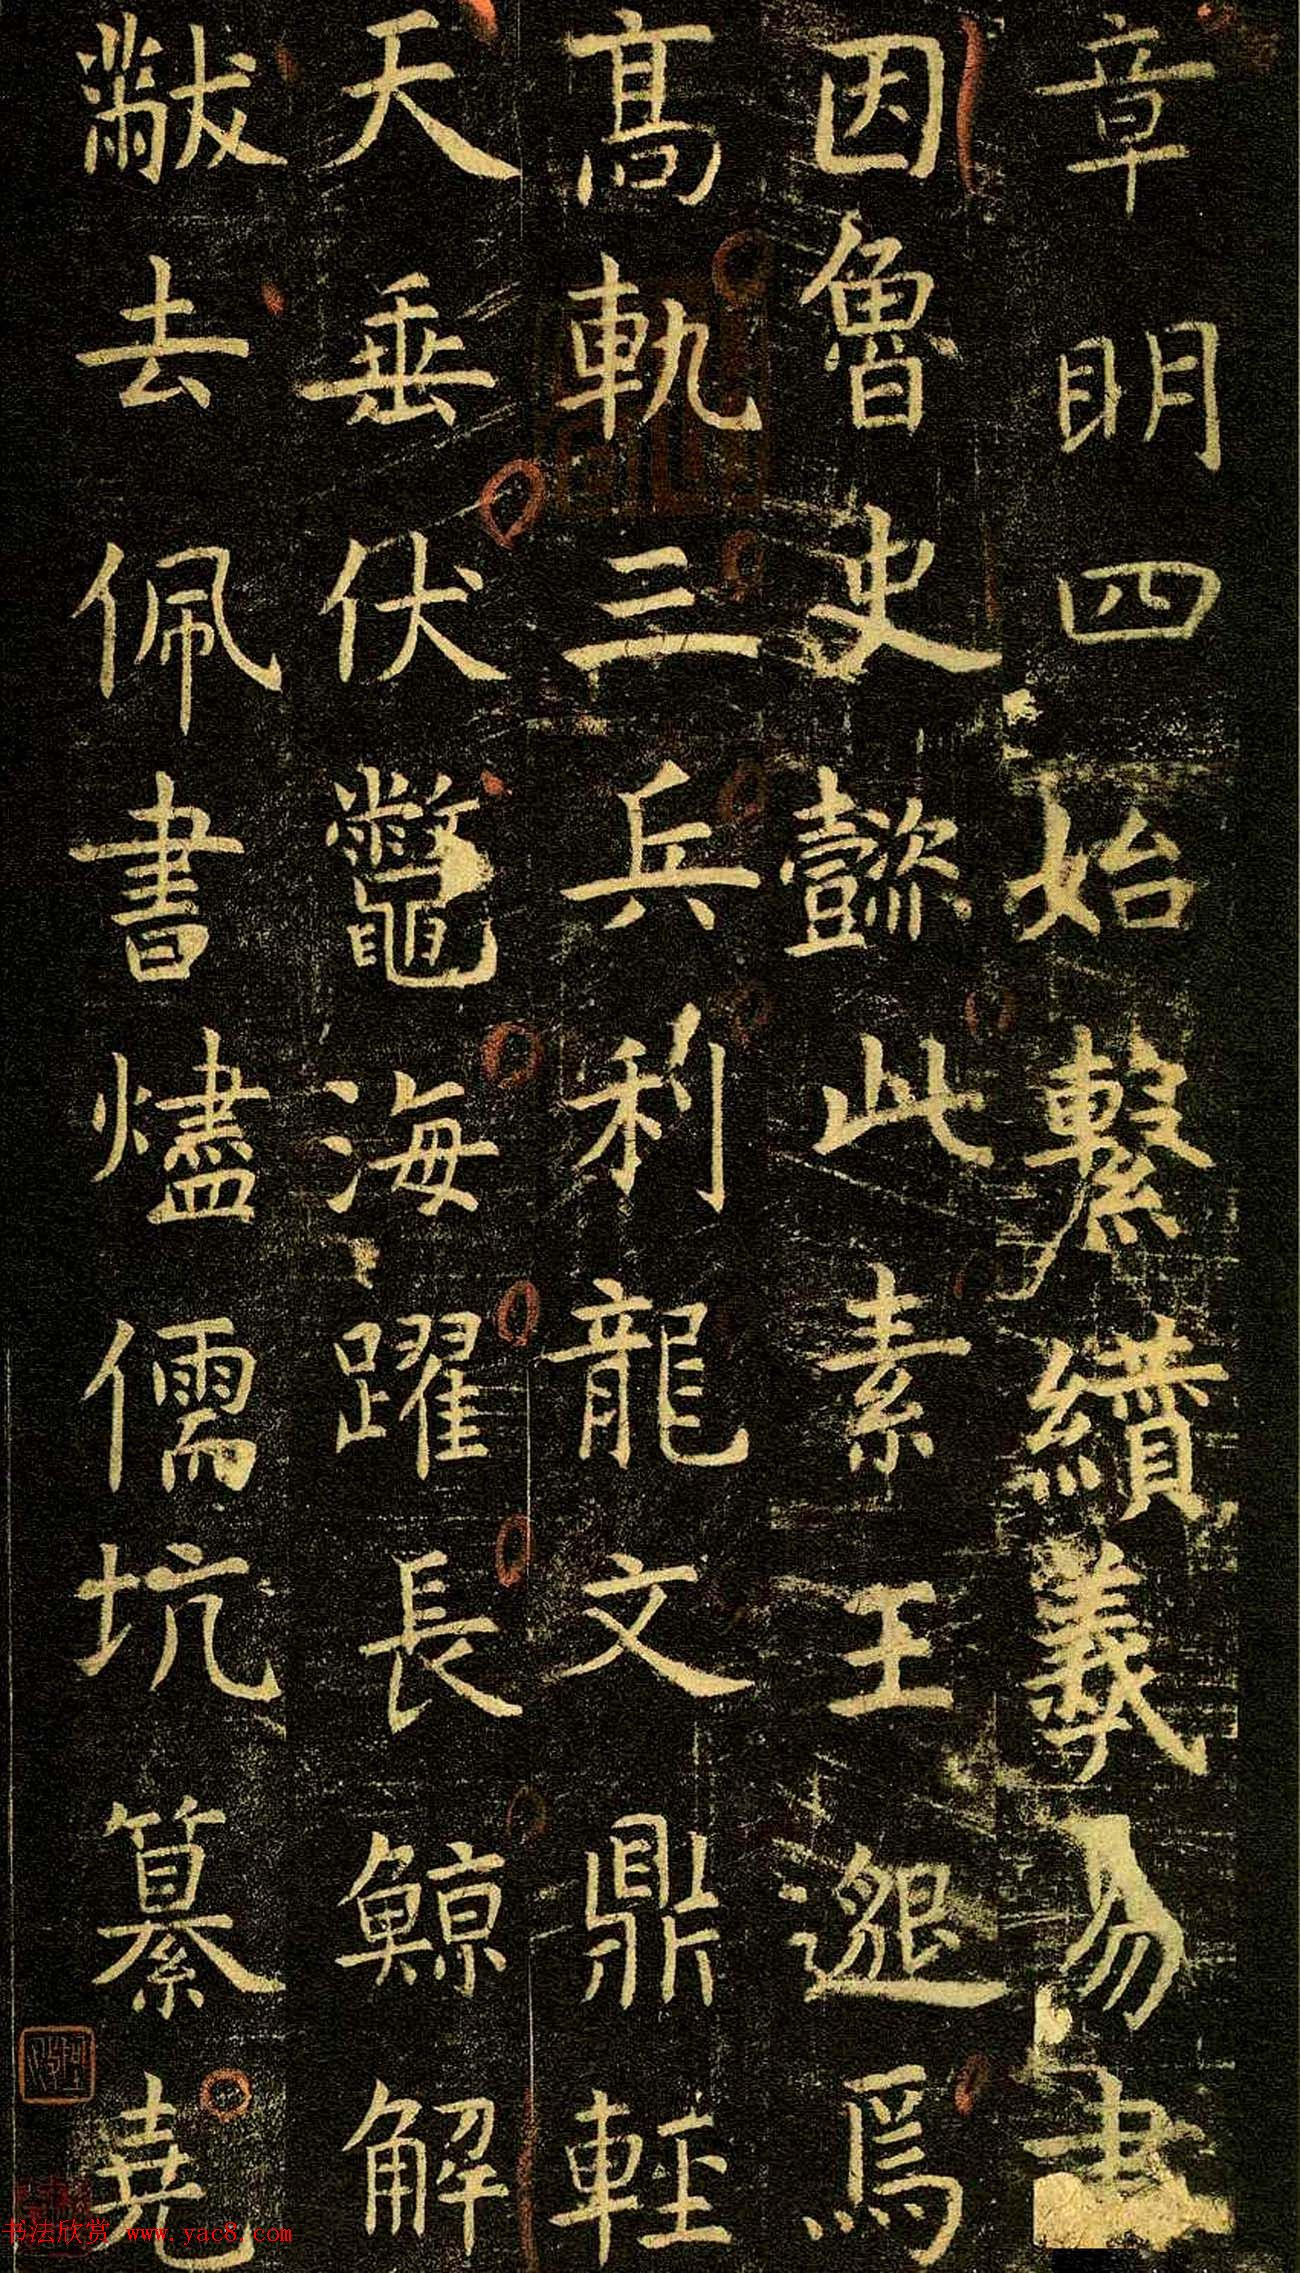 章明四始繫纘羲易書
因魯史懿此素王邈焉
髙軌三兵利龍文鼎輕
天垂伏鼈海躍長鯨解
黻去佩書燼儒坑纂堯
书法欣赏 www.yac8.com